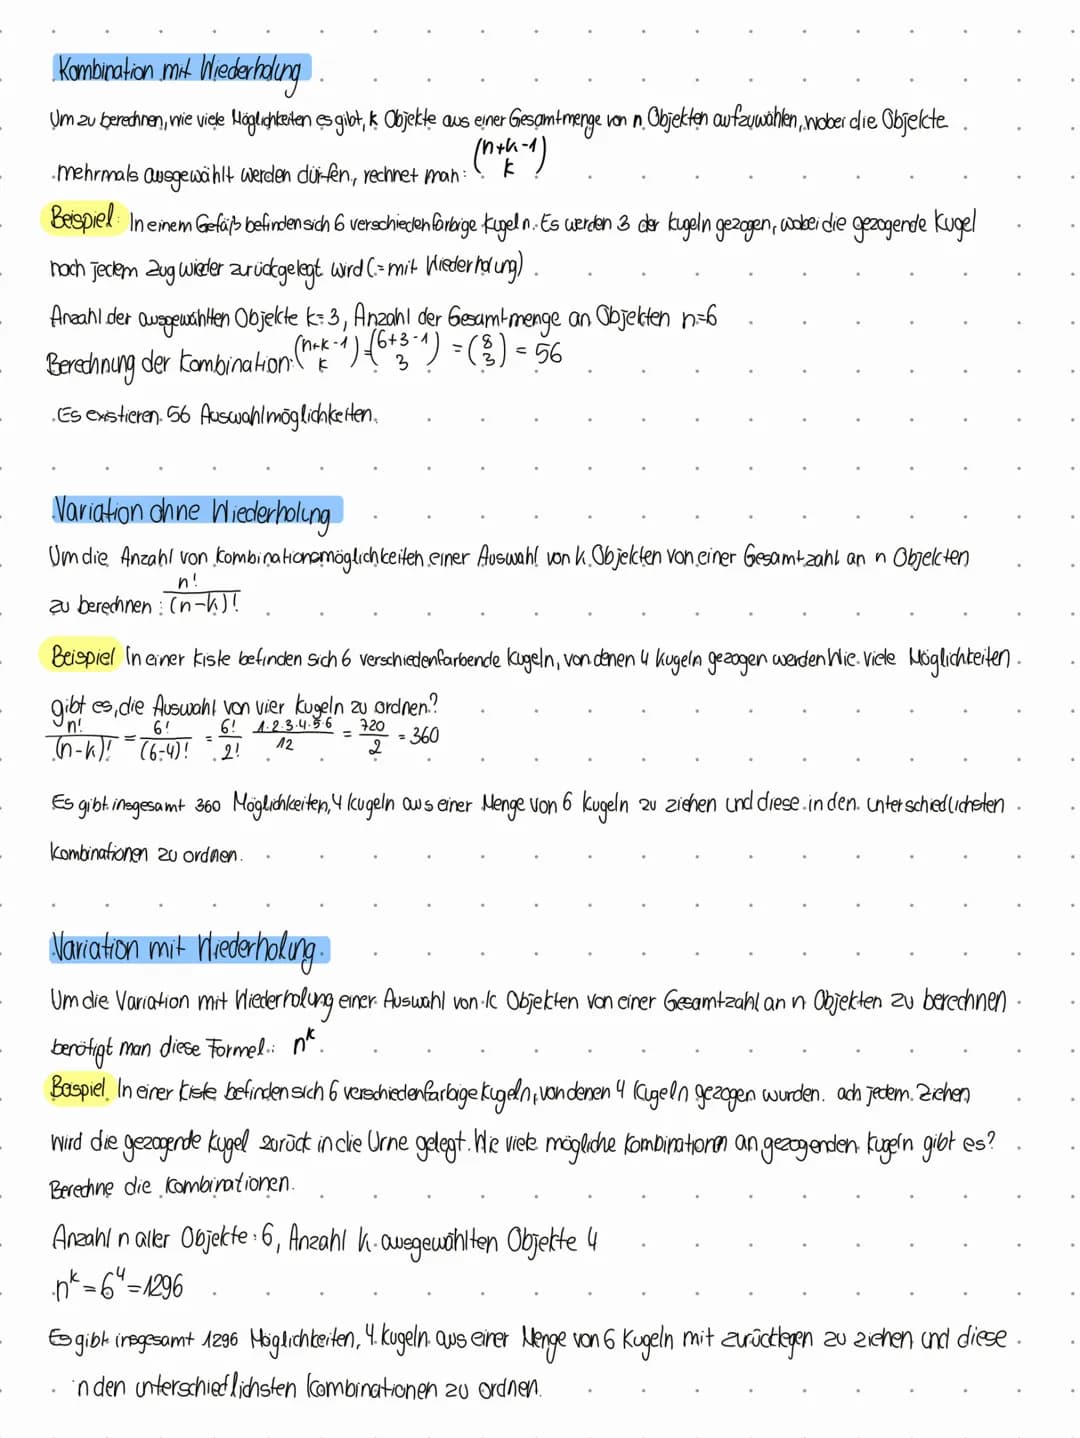 Kombination mit Wiederholung
Um zu berechnen, wie viele Möglichkeiten es gibt, k Objekte aus einer Gesamtmenge von n Objekten aufzuwählen, wobei die Objekte
mehrmals ausgewählt werden dürfen, rechnet man: (n+k-1 k)
Beispiel: In einem Gefäß befinden sich 6 verschiedenfarbige Kugeln. Es werden 3 der Kugeln gezogen, wobei die gezogende Kugel
nach jedem Zug wieder zurückgelegt wird (= mit Wiederholung)
Anzahl der ausgewählten Objekte k=3, Anzahl der Gesamtmenge an Objekten n=6
Berechnung der Kombination: (n+k-1 k) = (6+3-1 3) = (8 3) = 56
Es existieren 56 Auswahlmöglichkeiten.
Variation ohne Wiederholung
Um die Anzahl von Kombinationsmöglichkeiten einer Auswahl von k Objekten von einer Gesamtzahl an n Objekten
zu berechnen: n!/(n-k)!
Beispiel In einer Kiste befinden sich 6 verschiedenfarbende Kugeln, von denen 4 Kugeln gezogen werden Wie viele Möglichkeiten
gibt es, die Auswahl von vier Kugeln zu ordnen?
n!/(n-k)! = 6!/(6-4)! = 6!/2! 1·2·3·4·5·6/12 = 720/2 = 360
Es gibt insgesamt 360 Möglichkeiten, 4 Kugeln aus einer Menge von 6 Kugeln zu ziehen und diese in den unterschiedlichsten
Kombinationen zu ordnen.
Variation mit Wiederholung
Um die Variation mit Wiederholung einer Auswahl von k Objekten von einer Gesamtzahl an n Objekten zu berechnen
benötigt man diese Formel: n^k
Beispiel In einer Kiste befinden sich 6 verschiedenfarbige Kugeln, von denen 4 Kugeln gezogen wurden. ach jedem Ziehen
wird die gezogende Kugel zurück in die Urne gelegt. Wie viele mögliche Kombinationen an gezogenden Kugeln gibt es?
Berechne die Kombinationen.
Anzahl n aller Objekte: 6, Anzahl k ausgewählten Objekte 4
n^k = 6^4 = 1296
Es gibt insgesamt 1296 Möglichkeiten, 4 Kugeln aus einer Menge von 6 Kugeln mit zurücklegen zu ziehen und diese
in den unterschiedlichsten Kombinationen zu ordnen.